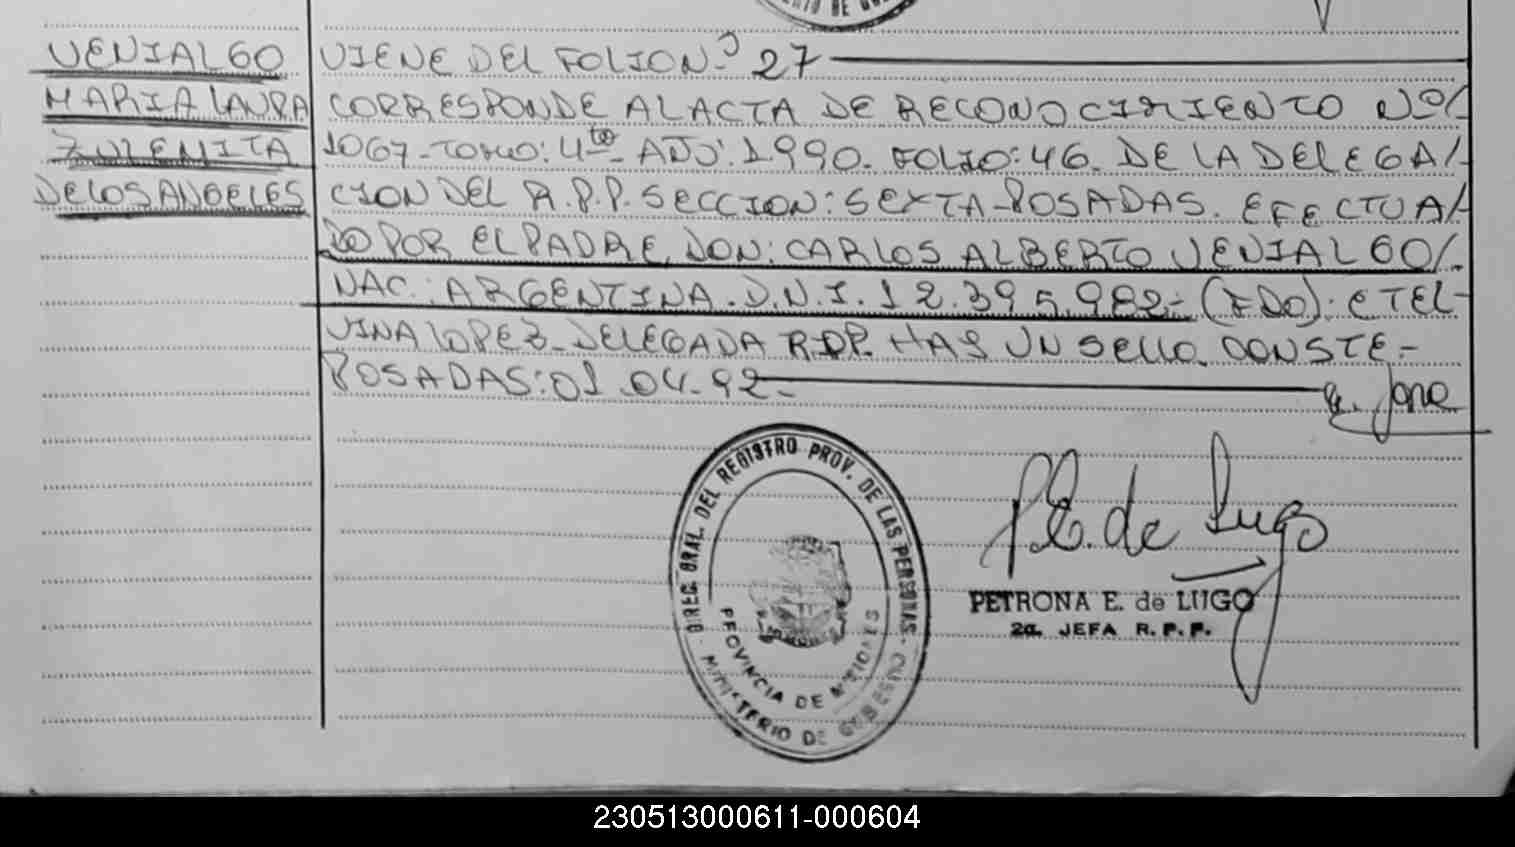 VENIALGO
MARIA LAURA
ZULEMITA
DE LOS ANGELES
VIENE DEL FOLIO Nº 27
CORRESPONDE AL ACTA DE RECONOCIMIENTO Nº/-
1067-TOMO: 4to- AÑO: 1990. FOLIO: 46. DE LA DELEGA/-
CION DEL R.P.P. SECCION: SEXTA-POSADAS. EFECTUA/-
DO POR EL PADRE, DON: CARLOS ALBERTO VENIALGO/.
NAC.: ARGENTINA. D.N.I. 12.395.982- (FDO): ETEL-
VINA LOPEZ- DELEGADA R.D.P. HAY UN SELLO. CONSTE.-
POSADAS: 01.04.92-
DIREC. GRAL. DEL REGISTRO PROV. DE LAS PERSONAS
PROVINCIA DE MISIONES
MINISTERIO DE GOBIERNO
P.E. de Lugo
PETRONA E. de LUGO
2a. JEFA R.P.P.
230513000611-000604